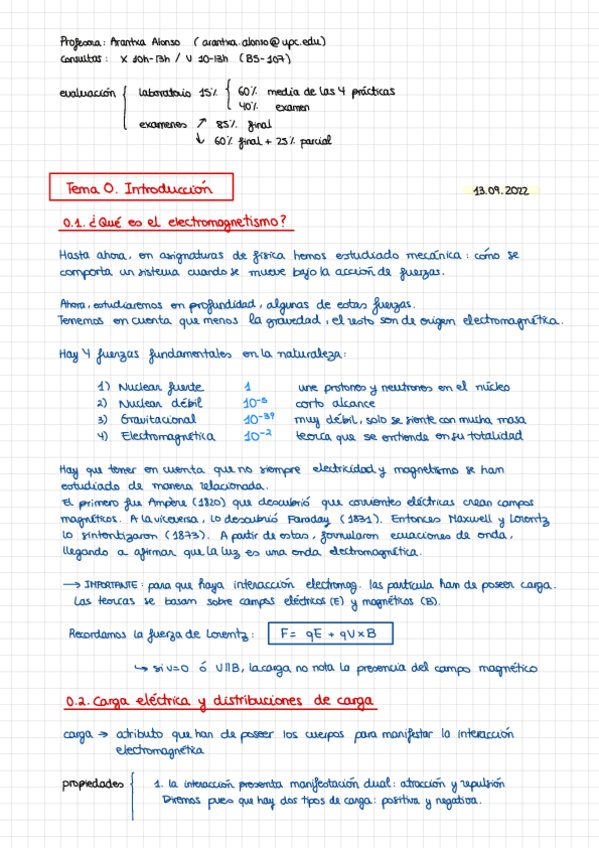 Profesora: Arantxa Alonso (arantxa.alonso@upc.edu)
Consultas: X 10h-13h / V 10-13h (B5-107)
evaluación { laboratorio 15% { 60% media de las 4 prácticas
40% examen
examenes ↗ 85% final
↳ 60% final + 25% parcial
Tema 0. Introducción
13.09.2022
0.1. ¿Qué es el electromagnetismo?
Hasta ahora, en asignaturas de física hemos estudiado mecánica: cómo se
comporta un sistema cuando se mueve bajo la acción de fuerzas.
Ahora, estudiaremos en profundidad, algunas de estas fuerzas.
Tenemos en cuenta que menos la gravedad, el resto son de origen electromagnética.
Hay 4 fuerzas fundamentales en la naturaleza:
1) Nuclear fuerte 1 une protones y neutrones en el núcleo
2) Nuclear débil 10⁻⁵ corto alcance
3) Gravitacional 10⁻³⁹ muy débil, solo se siente con mucha masa
4) Electromagnética 10⁻² teoría que se entiende en su totalidad
Hay que tener en cuenta que no siempre electricidad y magnetismo se han
estudiado de manera relacionada.
El primero fue Ampère (1820) que descubrió que corrientes eléctricas crean campos
magnéticos. A la viceversa, lo descubrió Faraday (1831). Entonces Maxwell y Lorentz
lo sintontizaron (1873). A partir de estas, formularon ecuaciones de onda,
llegando a afirmar que la luz es una onda electromagnética.
→ IMPORTANTE: para que haya interacción electromag. las partícula han de poseer carga.
Las teorías se basan sobre campos eléctricos (E) y magnéticos (B).
Recordamos la fuerza de Lorentz: F = qE + qv×B
↳ si v=0 ó v||B, la carga no nota la presencia del campo magnético
0.2. Carga eléctrica y distribuciones de carga
carga → atributo que han de poseer los cuerpos para manifestar la interacción
electromagnética
propiedades { 1. la interacción presenta manifestación dual: atracción y repulsión
Diremos pues que hay dos tipos de carga: positiva y negativa.